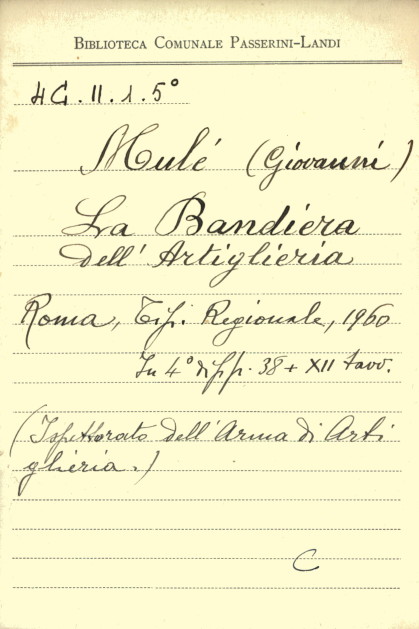 BIBLIOTECA COMUNALE PASSERINI-LANDI
4G.II.1.5°
Mulé (Giovanni)
La Bandiera
dell'Artiglieria
Roma, Tip. Regionale, 1960
In 4° di pp. 38 + XII tavv.
(Ispettorato dell'Arma di Arti
glieria.)
C